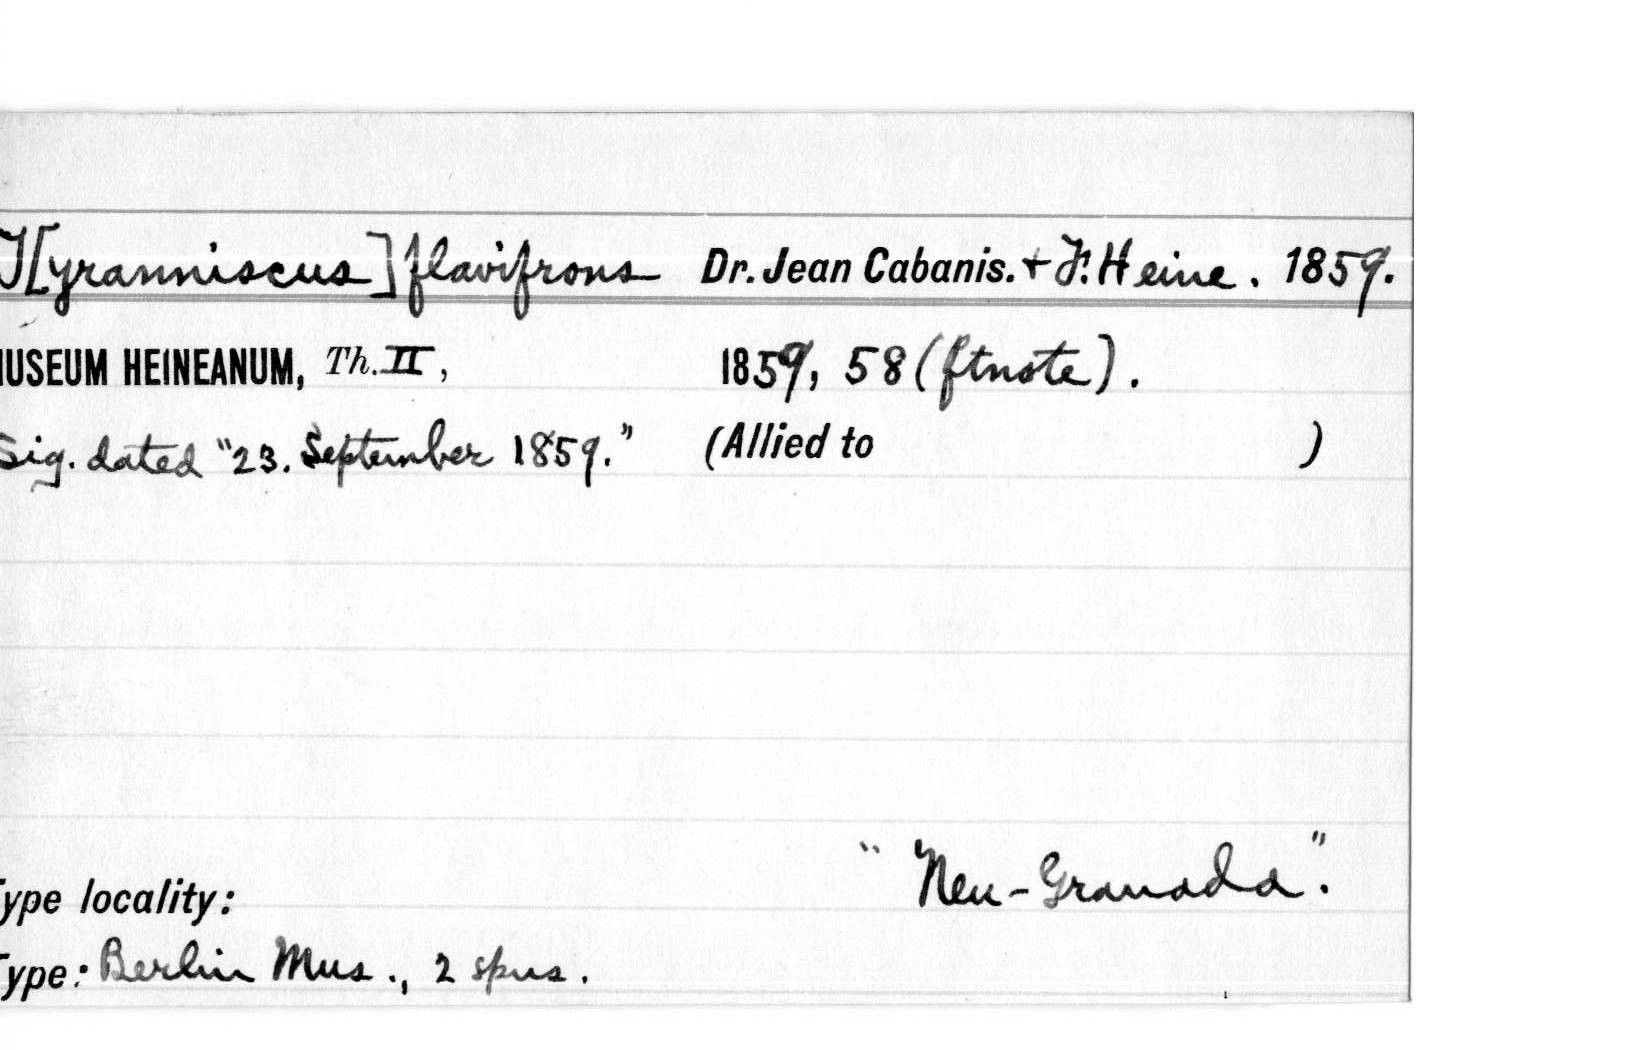 T[yranniscus] flavifrons Dr. Jean Cabanis. + F. Heine. 1859.
MUSEUM HEINEANUM, Th. II, 1859, 58 (ftnote).
Sig. dated "23. September 1859." (Allied to )
"Neu-Granada".
Type locality:
Type: Berlin Mus., 2 spns.